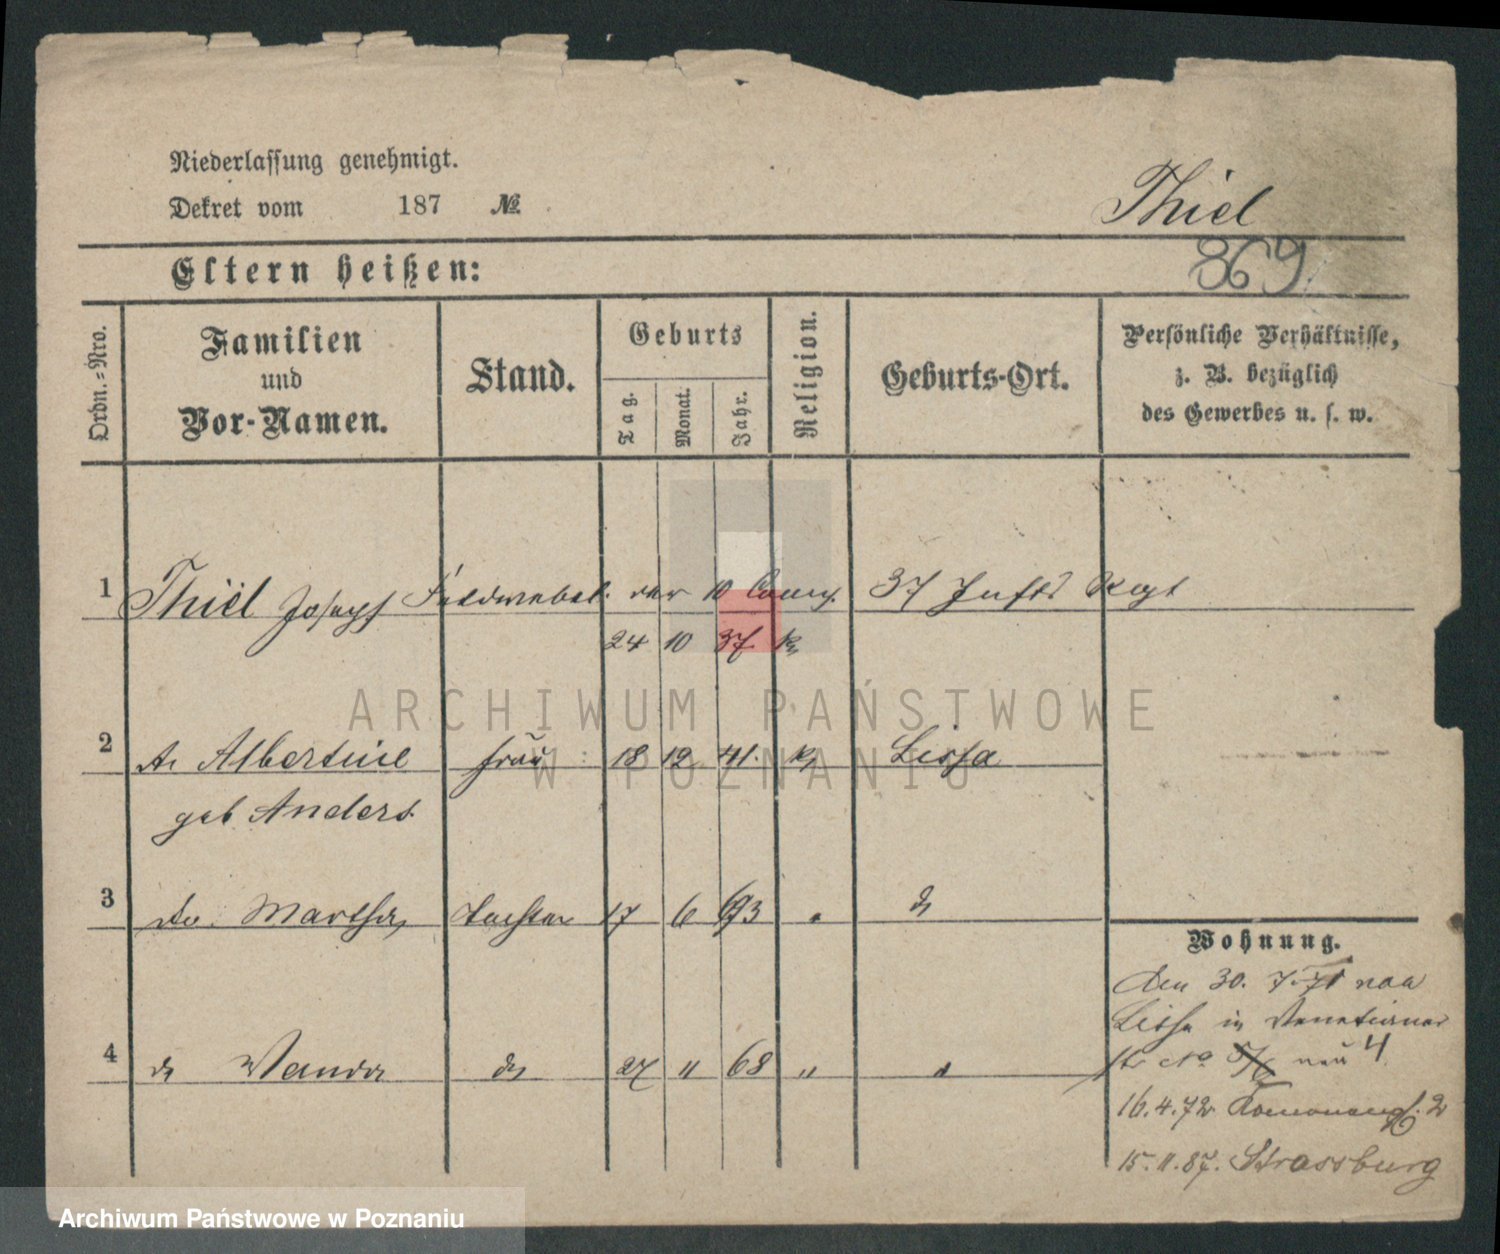 Niederlassung genehmigt.
Dekret vom 187 №
Thiel
Eltern heißen:
369
Ordn.-Nro.
Familien
und
Vor-Namen.
Stand.
Geburts
Tag.
Monat.
Jahr.
Religion.
Geburts-Ort.
Persönliche Verhältnisse,
z. B. bezüglich
des Gewerbes u. s. w.
1 Thiel Joseph Feldwebel der 10 Comp. 37 Inftr Regt
24 10 37 k
ARCHIWUM PAŃSTWOWE
W POZNANIU
2 Albertine Frau 18 12 41. k Lissa
geb Anders
3 do. Martha Tochter 17 6 63 " do
Wohnung.
Den 30. 7. 71 von
Lissa in Venetianer
4 do Wanda do 27 " 68 " "
str No neu 4
16.4.72 2
15.11.87. Strassburg
Archiwum Państwowe w Poznaniu